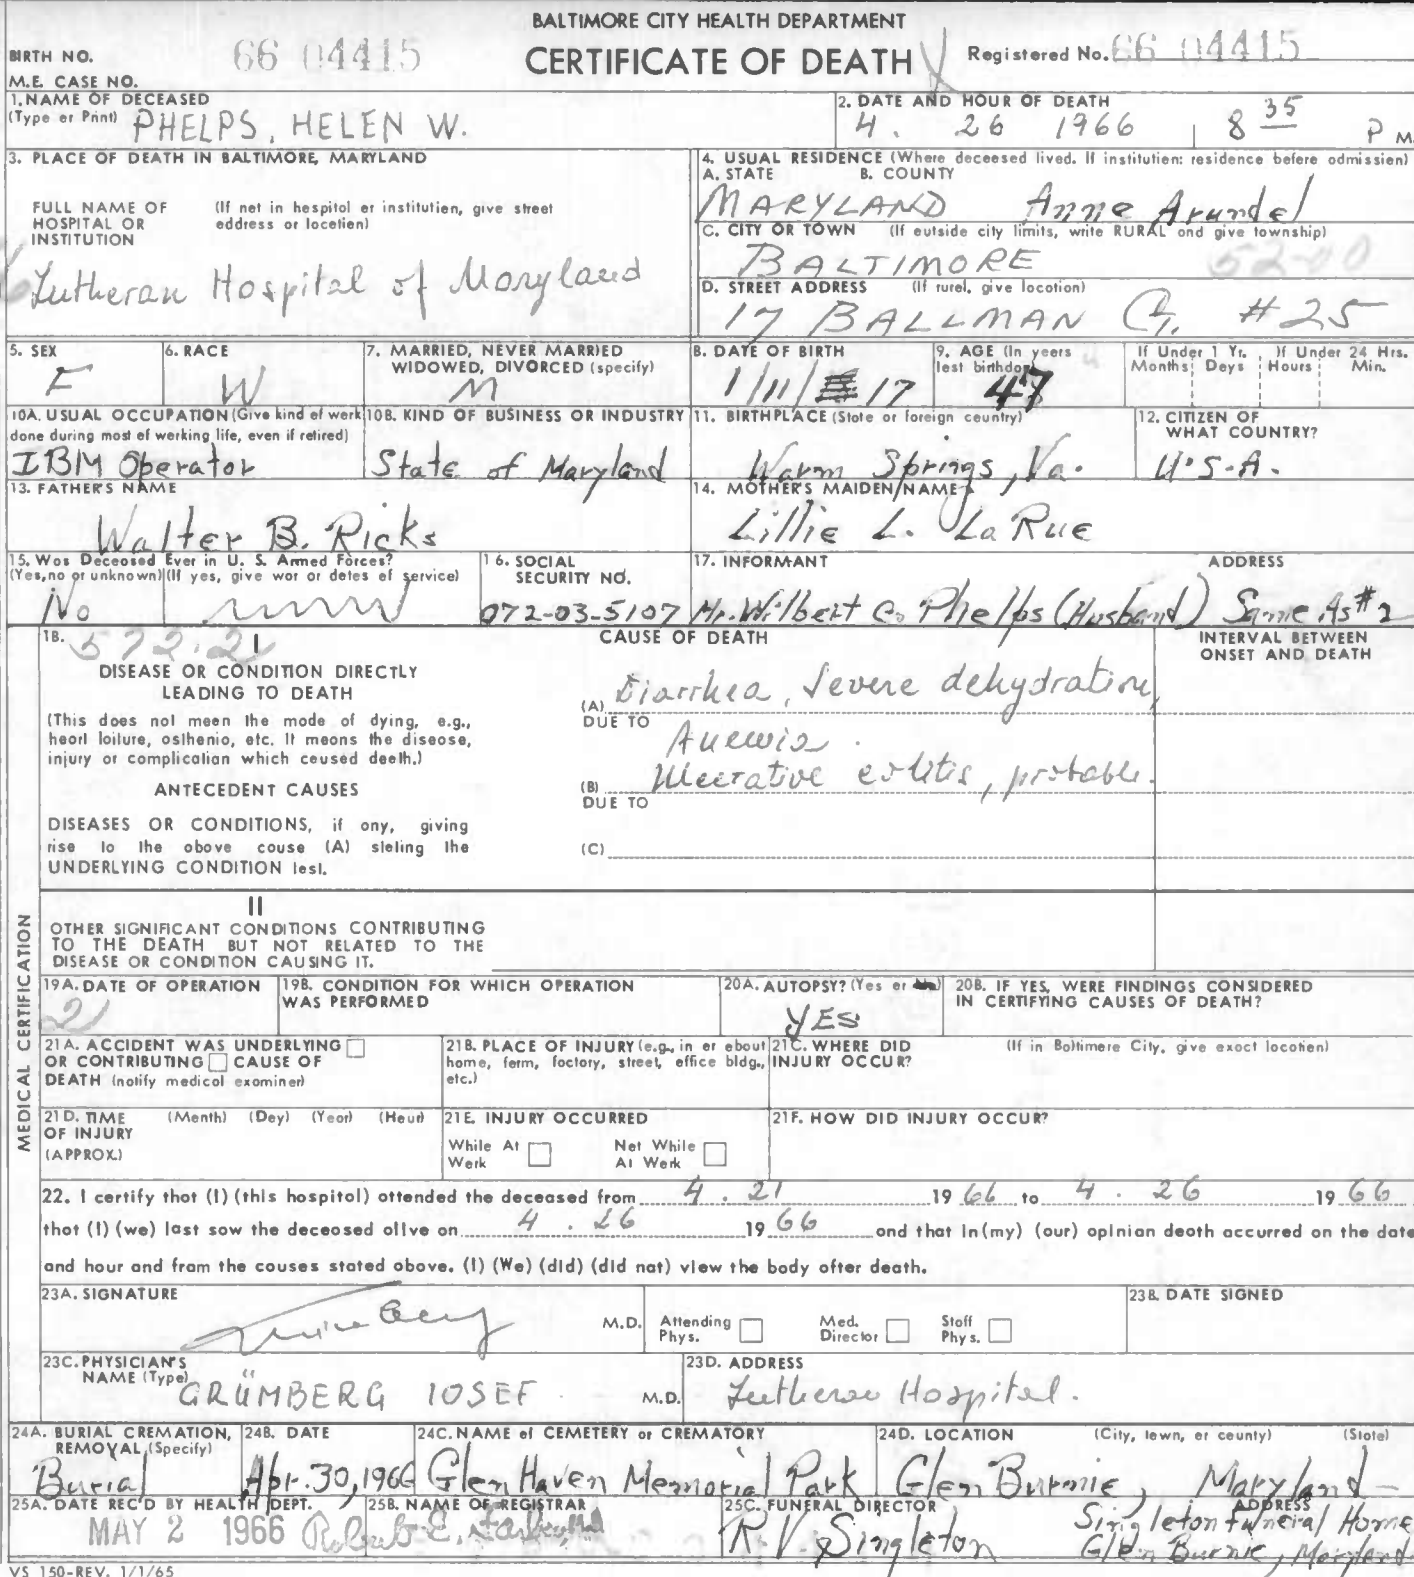 BALTIMORE CITY HEALTH DEPARTMENT
CERTIFICATE OF DEATH
BIRTH NO. 66 04415
Registered No. 66 04415
M.E. CASE NO.
1. NAME OF DECEASED
(Type or Print) PHELPS, HELEN W.
2. DATE AND HOUR OF DEATH
4. 26 1966 8 35 P M.
3. PLACE OF DEATH IN BALTIMORE, MARYLAND
FULL NAME OF HOSPITAL OR INSTITUTION
(If not in hospital or institution, give street address or location)
Lutheran Hospital of Maryland
4. USUAL RESIDENCE (Where deceased lived. If institution: residence before admission)
A. STATE B. COUNTY
MARYLAND Anne Arundel
C. CITY OR TOWN (If outside city limits, write RURAL and give township)
BALTIMORE 52-00
D. STREET ADDRESS (If rural, give location)
17 BALLMAN Ct. #25
5. SEX
F
6. RACE
W
7. MARRIED, NEVER MARRIED
WIDOWED, DIVORCED (specify)
M
8. DATE OF BIRTH
1/11/ 17
9. AGE (In years
last birthday)
If Under 1 Yr. If Under 24 Hrs.
Months Days Hours Min.
10A. USUAL OCCUPATION (Give kind of work
done during most of working life, even if retired)
IBM Operator
10B. KIND OF BUSINESS OR INDUSTRY
State of Maryland
11. BIRTHPLACE (State or foreign country)
Warm Springs, Va.
12. CITIZEN OF
WHAT COUNTRY?
U.S.A.
13. FATHER'S NAME
Walter B. Ricks
14. MOTHER'S MAIDEN NAME
Lillie L. LaRue
15. Was Deceased Ever in U. S. Armed Forces?
(Yes, no or unknown) (If yes, give war or dates of service)
No
16. SOCIAL
SECURITY NO.
072-03-5107
17. INFORMANT ADDRESS
Mr. Wilbert C. Phelps (Husband) Same As #2
18. 572.2
I
DISEASE OR CONDITION DIRECTLY
LEADING TO DEATH
(This does not mean the mode of dying, e.g.,
heart failure, asthenia, etc. It means the disease,
injury or complication which caused death.)
ANTECEDENT CAUSES
DISEASES OR CONDITIONS, if any, giving
rise to the above cause (A) stating the
UNDERLYING CONDITION last.
CAUSE OF DEATH
INTERVAL BETWEEN
ONSET AND DEATH
(A) Diarrhea, Severe dehydration,
DUE TO
Anemia.
(B) Ulcerative colitis, probable.
DUE TO
(C)
II
OTHER SIGNIFICANT CONDITIONS CONTRIBUTING
TO THE DEATH BUT NOT RELATED TO THE
DISEASE OR CONDITION CAUSING IT.
MEDICAL CERTIFICATION
19A. DATE OF OPERATION
2
19B. CONDITION FOR WHICH OPERATION
WAS PERFORMED
20A. AUTOPSY? (Yes or No)
YES
20B. IF YES, WERE FINDINGS CONSIDERED
IN CERTIFYING CAUSES OF DEATH?
21A. ACCIDENT WAS UNDERLYING
OR CONTRIBUTING CAUSE OF
DEATH (notify medical examiner)
21B. PLACE OF INJURY (e.g., in or about
home, farm, factory, street, office bldg.,
etc.)
21C. WHERE DID
INJURY OCCUR?
(If in Baltimore City, give exact location)
21D. TIME (Month) (Day) (Year) (Hour)
OF INJURY
(APPROX.)
21E. INJURY OCCURRED
While At Work
Not While At Work
21F. HOW DID INJURY OCCUR?
22. I certify that (I) (this hospital) attended the deceased from 4 . 21 1966 to 4 . 26 1966
that (I) (we) last saw the deceased alive on 4 . 26 1966 and that in (my) (our) opinion death occurred on the date
and hour and from the causes stated above. (I) (We) (did) (did not) view the body after death.
23A. SIGNATURE
M.D.
Attending Phys.
Med. Director
Staff Phys.
23B. DATE SIGNED
23C. PHYSICIAN'S
NAME (Type) GRÜMBERG IOSEF M.D.
23D. ADDRESS
Lutheran Hospital.
24A. BURIAL CREMATION,
REMOVAL (Specify)
Burial
24B. DATE
Apr. 30, 1966
24C. NAME of CEMETERY or CREMATORY
Glen Haven Memorial Park
24D. LOCATION (City, town, or county) (State)
Glen Burnie, Maryland
25A. DATE REC'D BY HEALTH DEPT.
MAY 2 1966
25B. NAME OF REGISTRAR
Robert E.
25C. FUNERAL DIRECTOR
R. V. Singleton
ADDRESS
Singleton Funeral Home
Glen Burnie, Maryland
VS 150-REV. 1/1/65